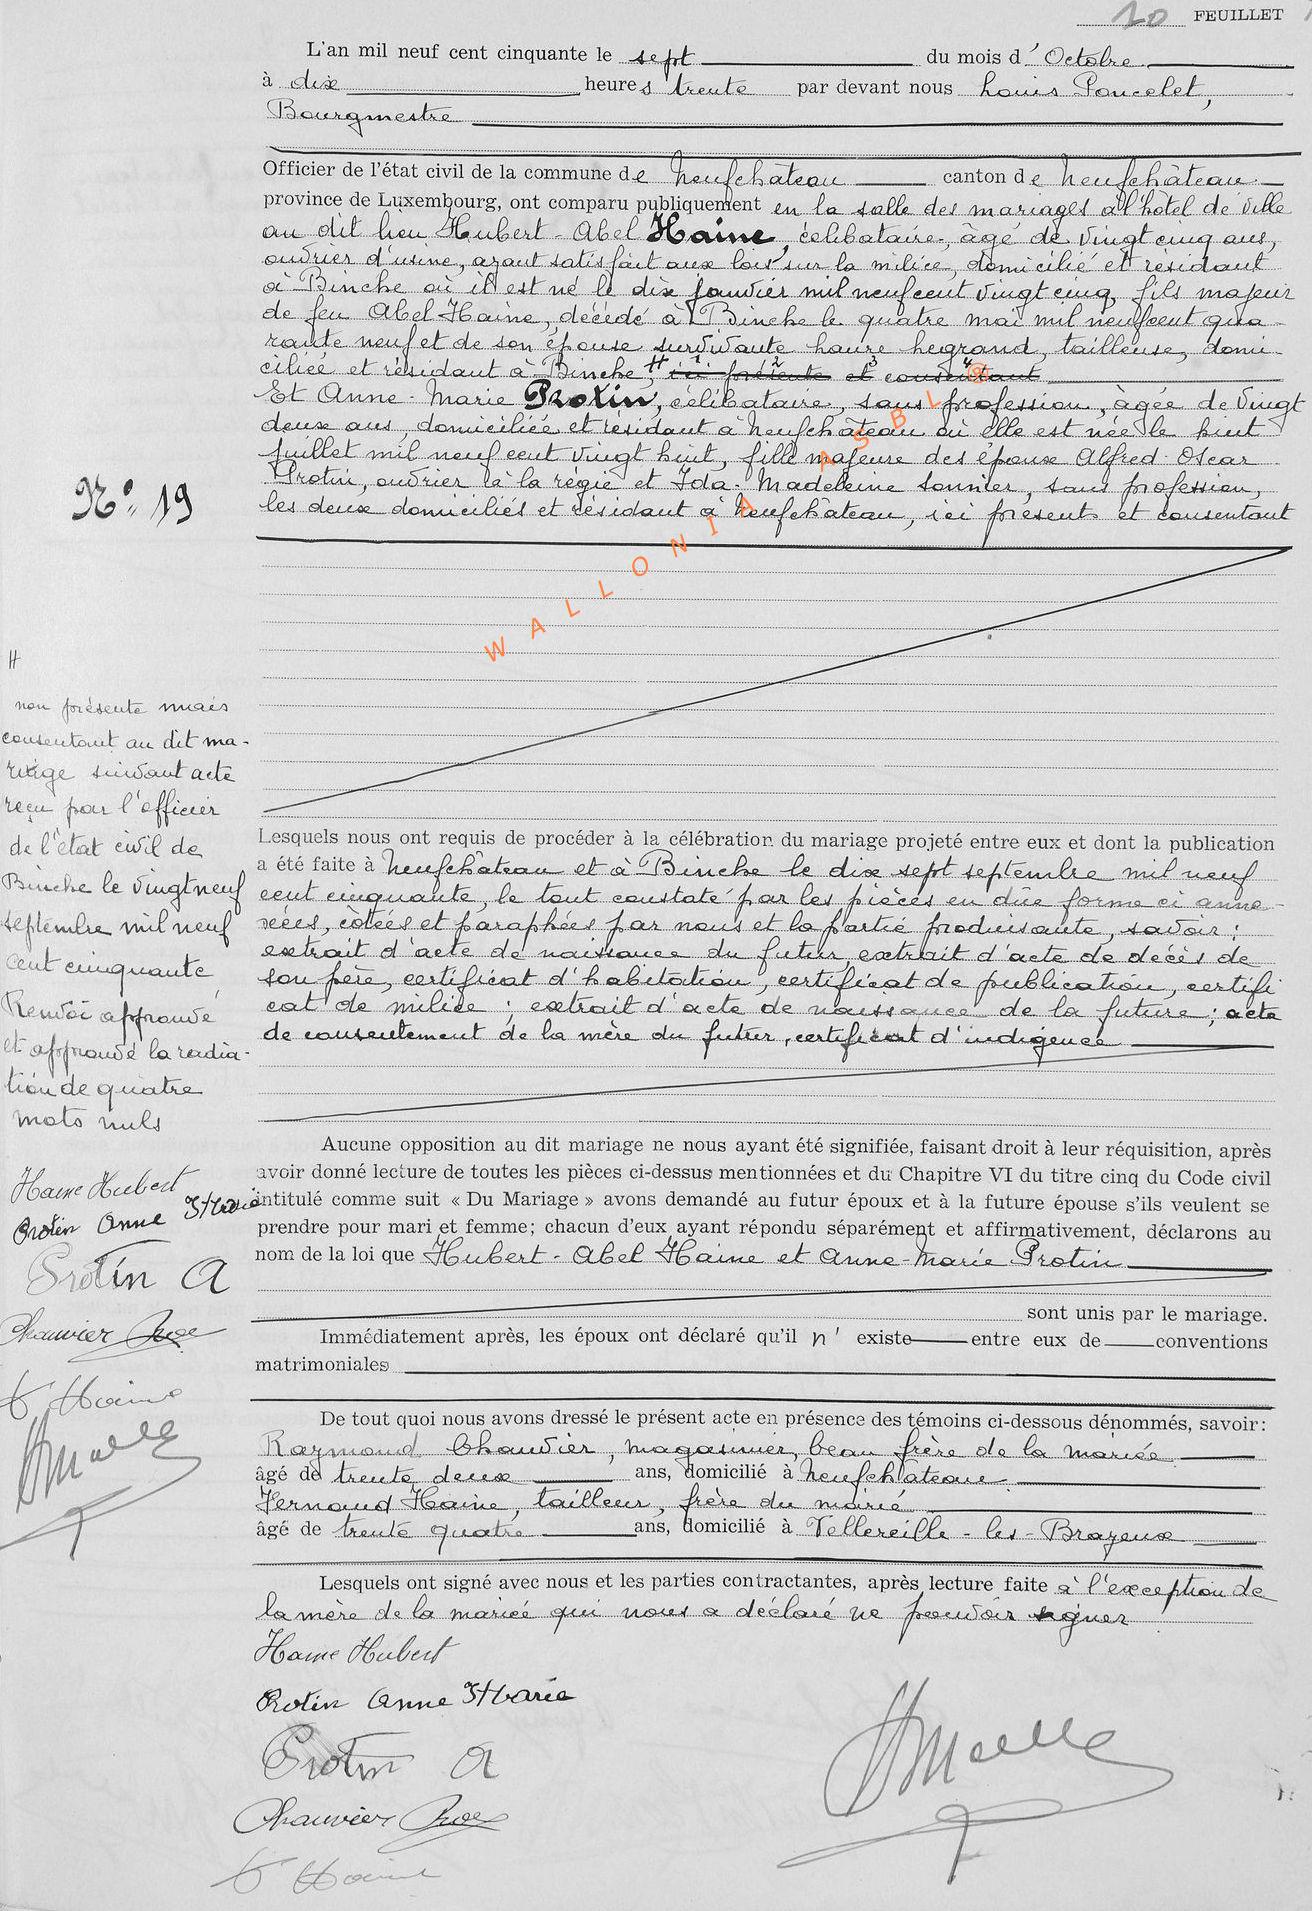 10 FEUILLET
L'an mil neuf cent cinquante le sept du mois d' Octobre
à dix heures trente par devant nous Louis Poncelet,
Bourgmestre
Officier de l'état civil de la commune de Neufchâteau canton de Neufchâteau
province de Luxembourg, ont comparu publiquement en la salle des mariages à l'hôtel de ville
au dit lieu Hubert-Abel Haine, célibataire, âgé de vingt cinq ans,
ouvrier d'usine, ayant satisfait aux lois sur la milice, domicilié et résidant
à Binche où il est né le dix janvier mil neuf cent vingt cinq, fils majeur
de feu Abel Haine, décédé à Binche le quatre mai mil neuf cent qua-
rante neuf et de son épouse survivante Laure Legrand, tailleuse, domi-
ciliée et résidant à Binche, # ici 1 présente 2 et 3 consentant 4
Et Anne-Marie Protin, célibataire, sans profession, âgée de vingt
deux ans, domiciliée et résidant à Neufchâteau où elle est née le huit
juillet mil neuf cent vingt huit, fille majeure des époux Alfred-Oscar
Protin, ouvrier à la régie et Ida-Madeleine Sonnier, sans profession,
les deux domiciliés et résidant à Neufchâteau, ici présents et consentant
N° 19
WALLONIA ASBL ®
#
non présente mais
consentant au dit ma-
riage suivant acte
reçu par l'officier
de l'état civil de
Binche le vingt neuf
septembre mil neuf
cent cinquante
Renvoi approuvé
et approuvé la radia-
tion de quatre
mots nuls
Haine Hubert
Protin Anne Marie
Protin A
Chauvier
F Haine
Lesquels nous ont requis de procéder à la célébration du mariage projeté entre eux et dont la publication
a été faite à Neufchâteau et à Binche le dix sept septembre mil neuf
cent cinquante, le tout constaté par les pièces en dûe forme ci anne-
xées, côtées et paraphées par nous et la partie produisante, savoir :
extrait d'acte de naissance du futur, extrait d'acte de décès de
son père, certificat d'habitation, certificat de publication, certifi
cat de milice ; extrait d'acte de naissance de la future ; acte
de consentement de la mère du futur, certificat d'indigence
Aucune opposition au dit mariage ne nous ayant été signifiée, faisant droit à leur réquisition, après
avoir donné lecture de toutes les pièces ci-dessus mentionnées et du Chapitre VI du titre cinq du Code civil
intitulé comme suit « Du Mariage » avons demandé au futur époux et à la future épouse s'ils veulent se
prendre pour mari et femme; chacun d'eux ayant répondu séparément et affirmativement, déclarons au
nom de la loi que Hubert-Abel Haine et Anne-Marie Protin
sont unis par le mariage.
Immédiatement après, les époux ont déclaré qu'il n' existe entre eux de conventions
matrimoniales
De tout quoi nous avons dressé le présent acte en présence des témoins ci-dessous dénommés, savoir:
Raymond Chauvier, magasinier, beau frère de la mariée
âgé de trente deux ans, domicilié à Neufchâteau
Fernand Haine, tailleur, frère du marié
âgé de trente quatre ans, domicilié à Vellereille-les-Brayeux
Lesquels ont signé avec nous et les parties contractantes, après lecture faite à l'exception de
la mère de la mariée qui nous a déclaré ne pouvoir signer
Haine Hubert
Protin Anne Marie
Protin A
Chauvier
F Haine